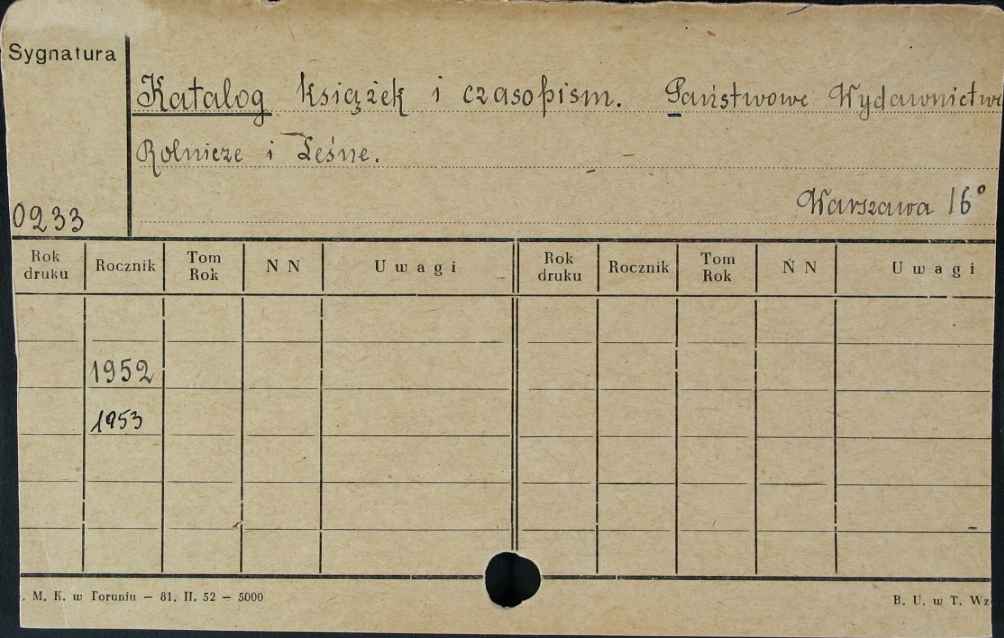 Sygnatura
Katalog książek i czasopism. Państwowe Wydawnictwo
Rolnicze i Leśne.
Warszawa 16°
0233
Rok druku Rocznik Tom Rok N N Uwagi Rok druku Rocznik Tom Rok N N Uwagi
1952
1953
. M. K. w Toruniu — 81. II. 52 — 5000 B. U. w T. Wz